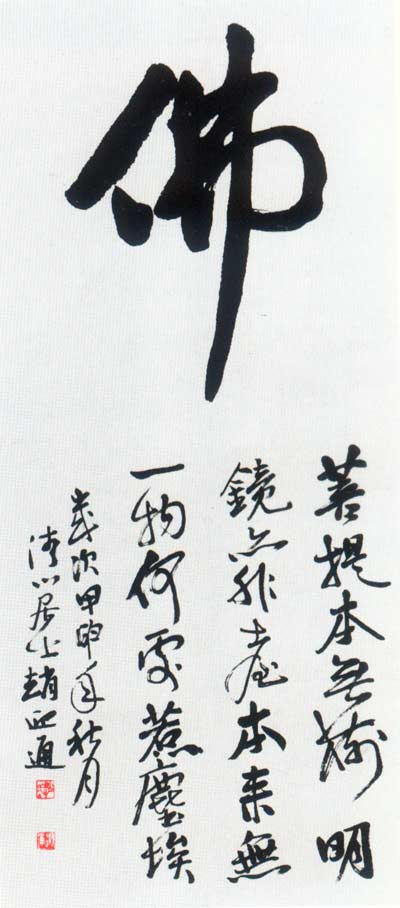 佛
菩提本無樹明
鏡亦非臺本来無
一物何處惹塵埃
歲次甲申年秋月
清心居士趙通